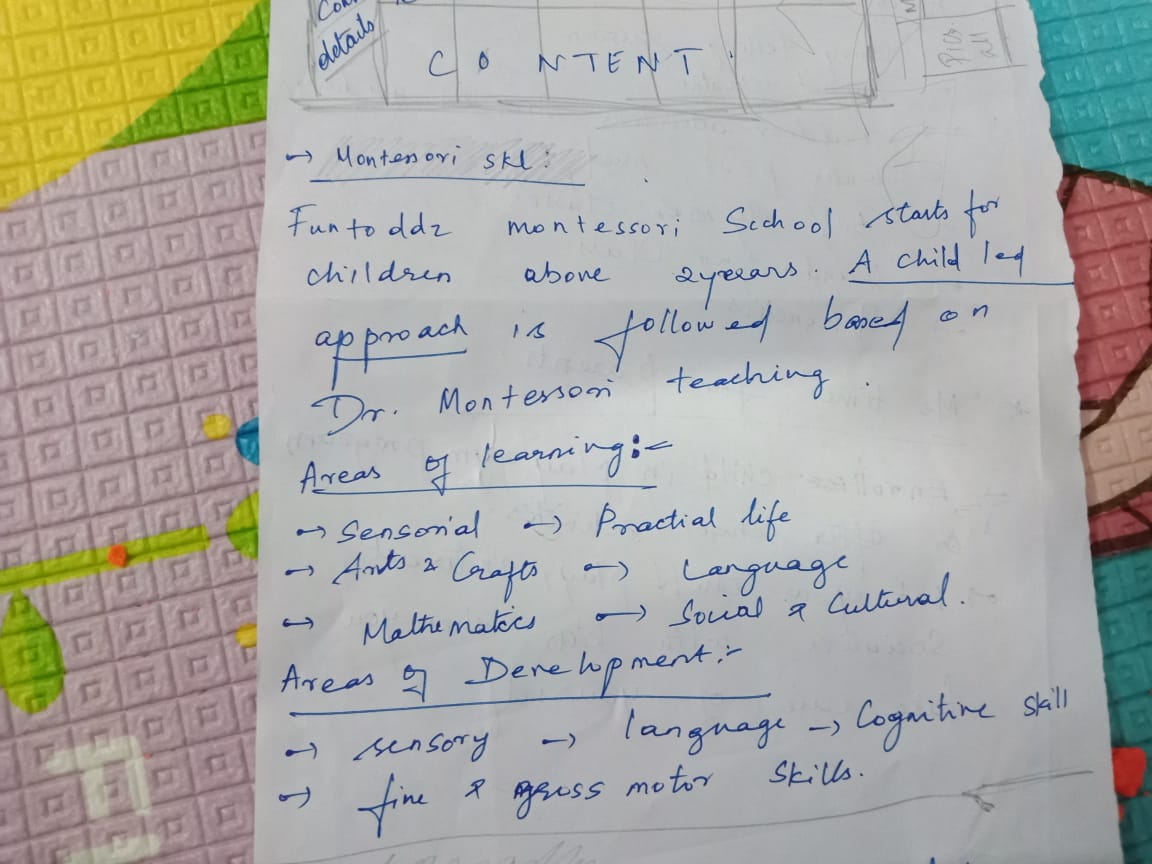 details
CONTENT
→ Montessori skl:
Funtoddz montessori School starts for
children above 2years. A child led
approach is followed based on
Dr. Montessori teaching.
Areas of learning:-
→ Sensorial → Practial life
→ Arts & Crafts → Language
→ Mathematics → Social & Cultural.
Areas of Development:-
→ sensory → language → Cognitive skill
→ fine & gross motor skills.